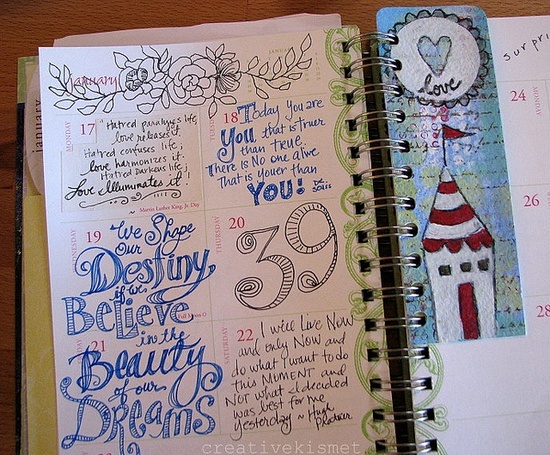 january
JANUARY
january
MONDAY
17
Hatred paralyzes life,
love releases it.
Hatred confuses life;
love harmonizes it.
Hatred Darkens life;
Love Illuminates it!
~ Martin Luther King, Jr. Day
18
Today you are
YOU, that is truer
than true.
There is No one alive
That is youer than
YOU!
19
We Shape
Our
Destiny
if we
Believe
in the
Beauty
of our
Dreams
THURSDAY
20
39
21
SATURDAY
22
I will Live Now
and only Now and
do what I want to do
this MOMENT and
NOT what I decided
was best for me
yesterday ~ Hugh
Prather
love
surpri
24
26
28
creativekismet